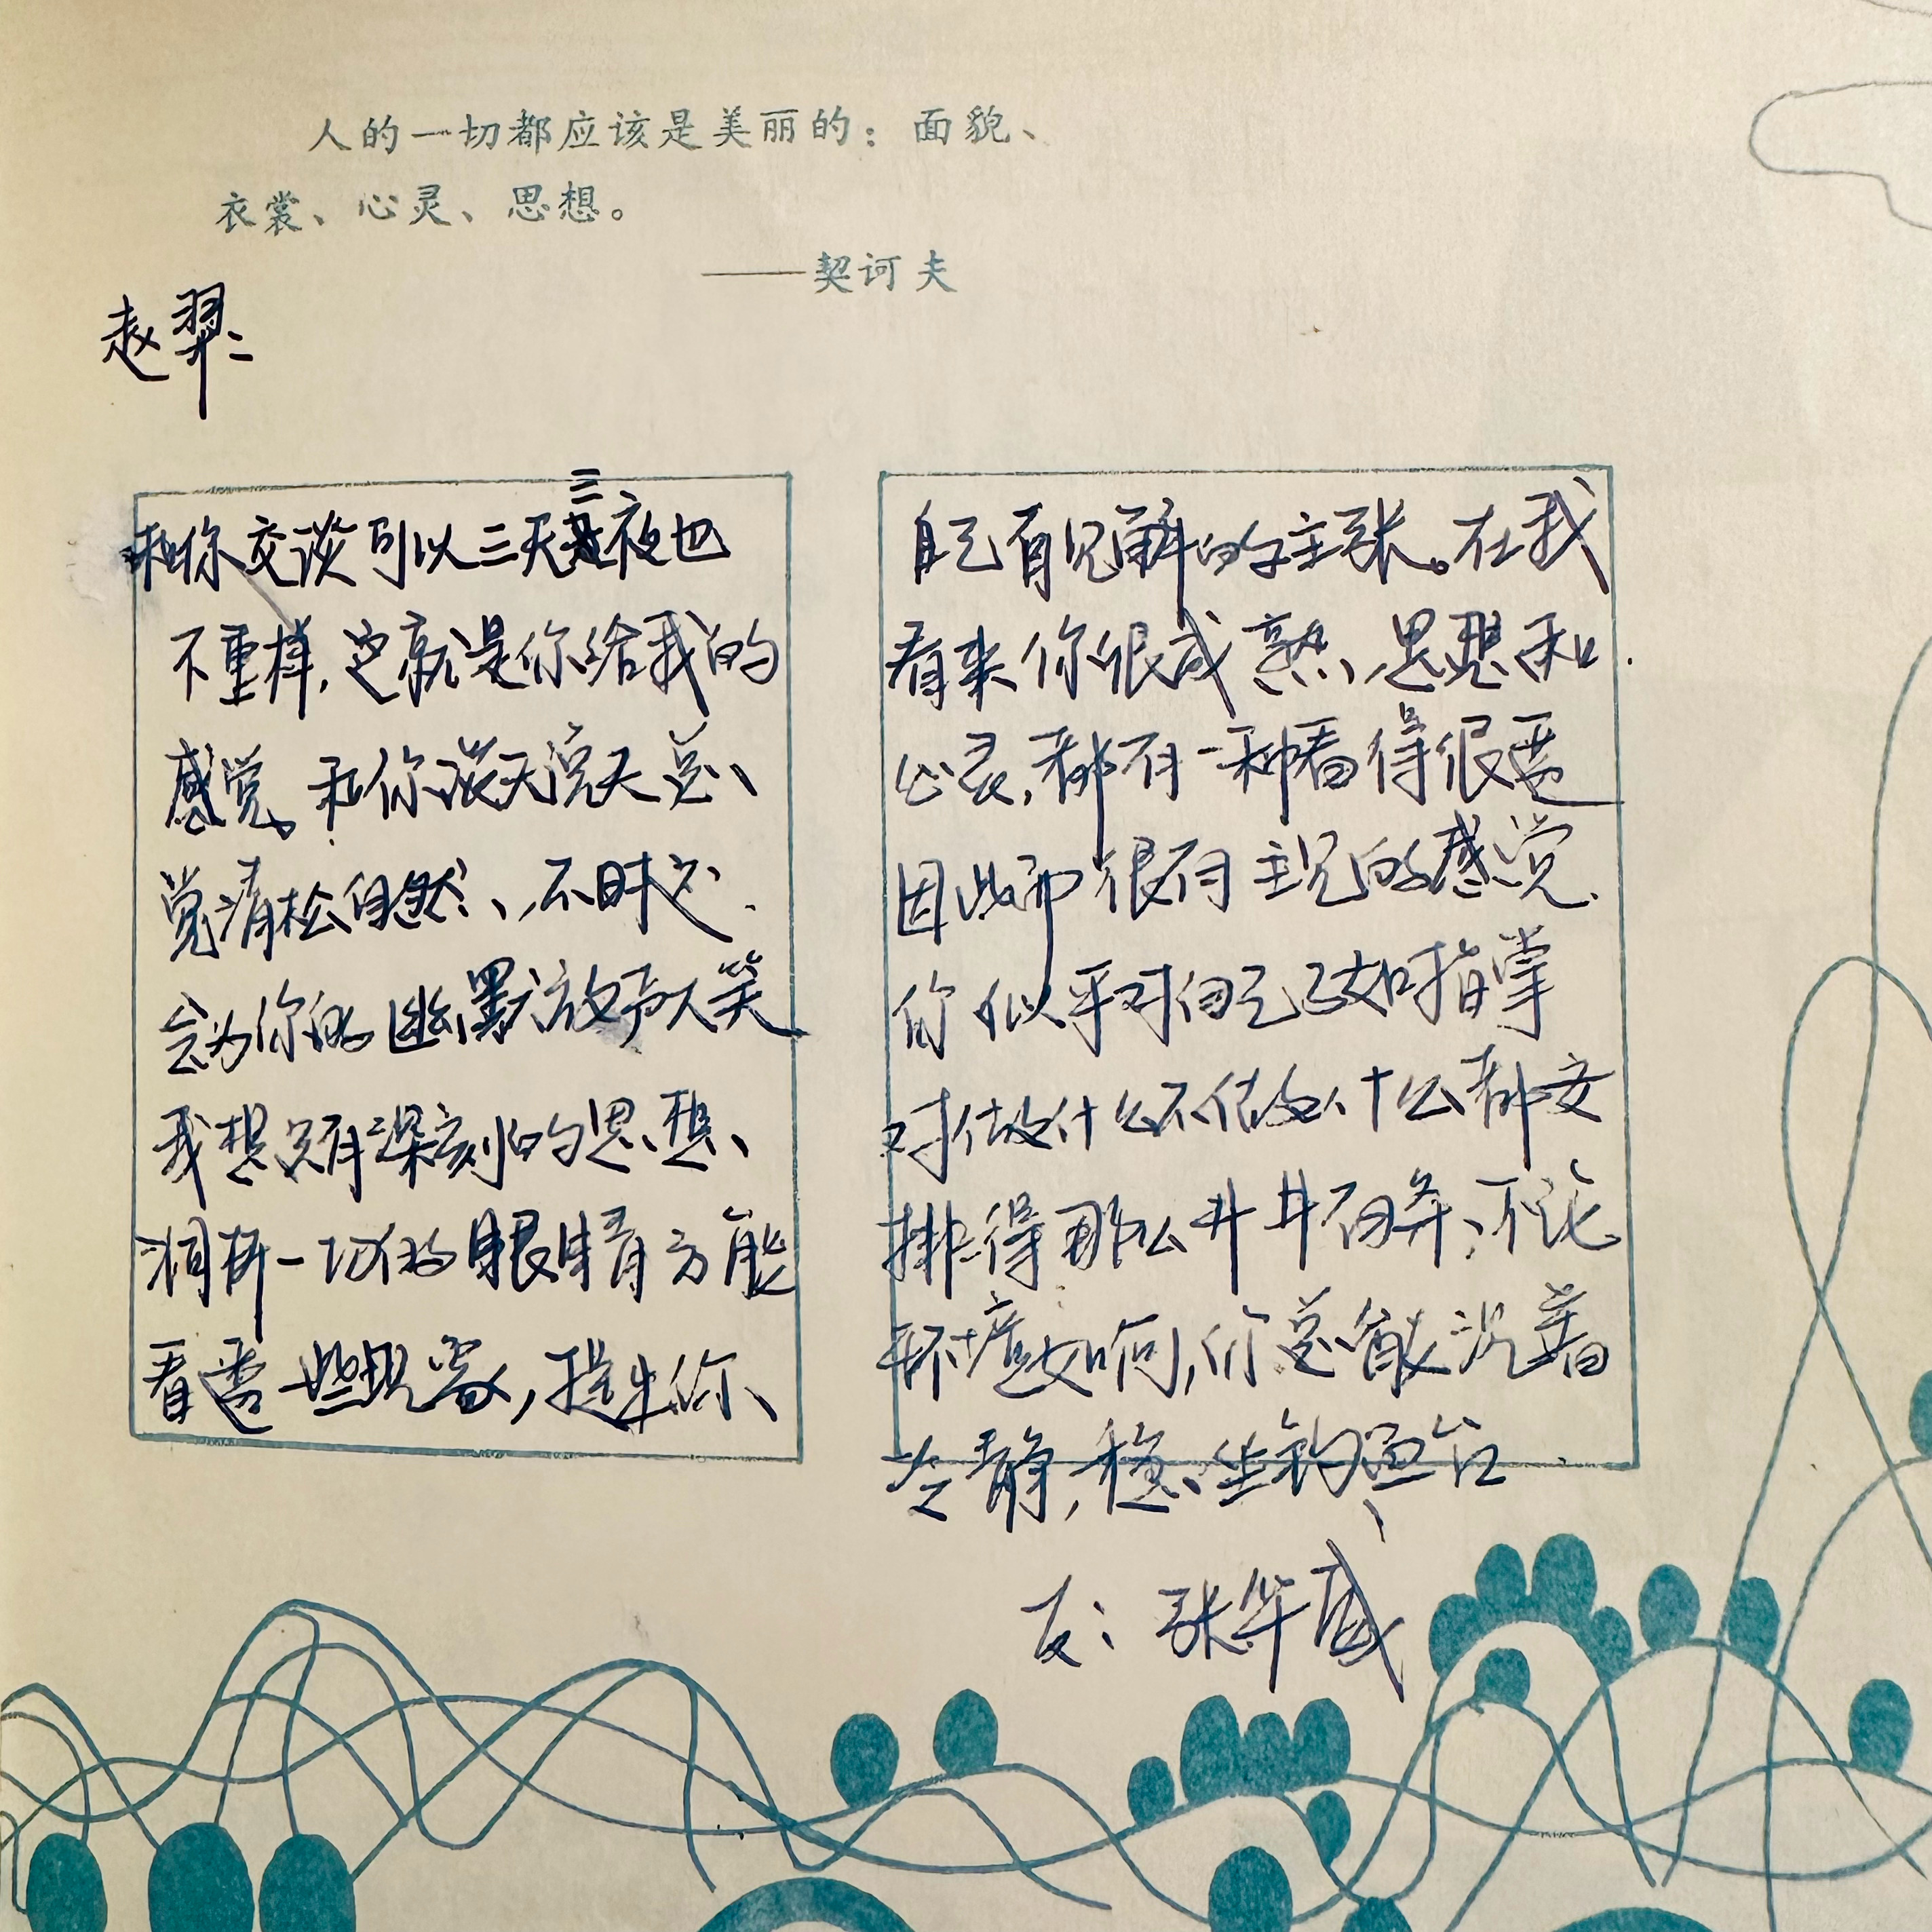 人的一切都应该是美丽的：面貌、
衣裳、心灵、思想。
——契诃夫
赵羿：
和你交谈可以三天三夜也
不重样，这就是你给我的
感觉。和你谈天说天总、
觉清松自然、、不时之.
会为你的幽默放声大笑
我想只有深刻的思想、
洞析一切的眼睛方能
看透一些现象，提出你、
自己有见解的主张。在我
看来你很成熟、思想和.
心灵，都有一种看得很透
因此而很有主见的感觉.
你似乎对自己了如指掌
对做什么不做什么都安
排得那么井井有条、不论
环境如何，你总能沉着
冷静，稳坐钓鱼台
友：张华威